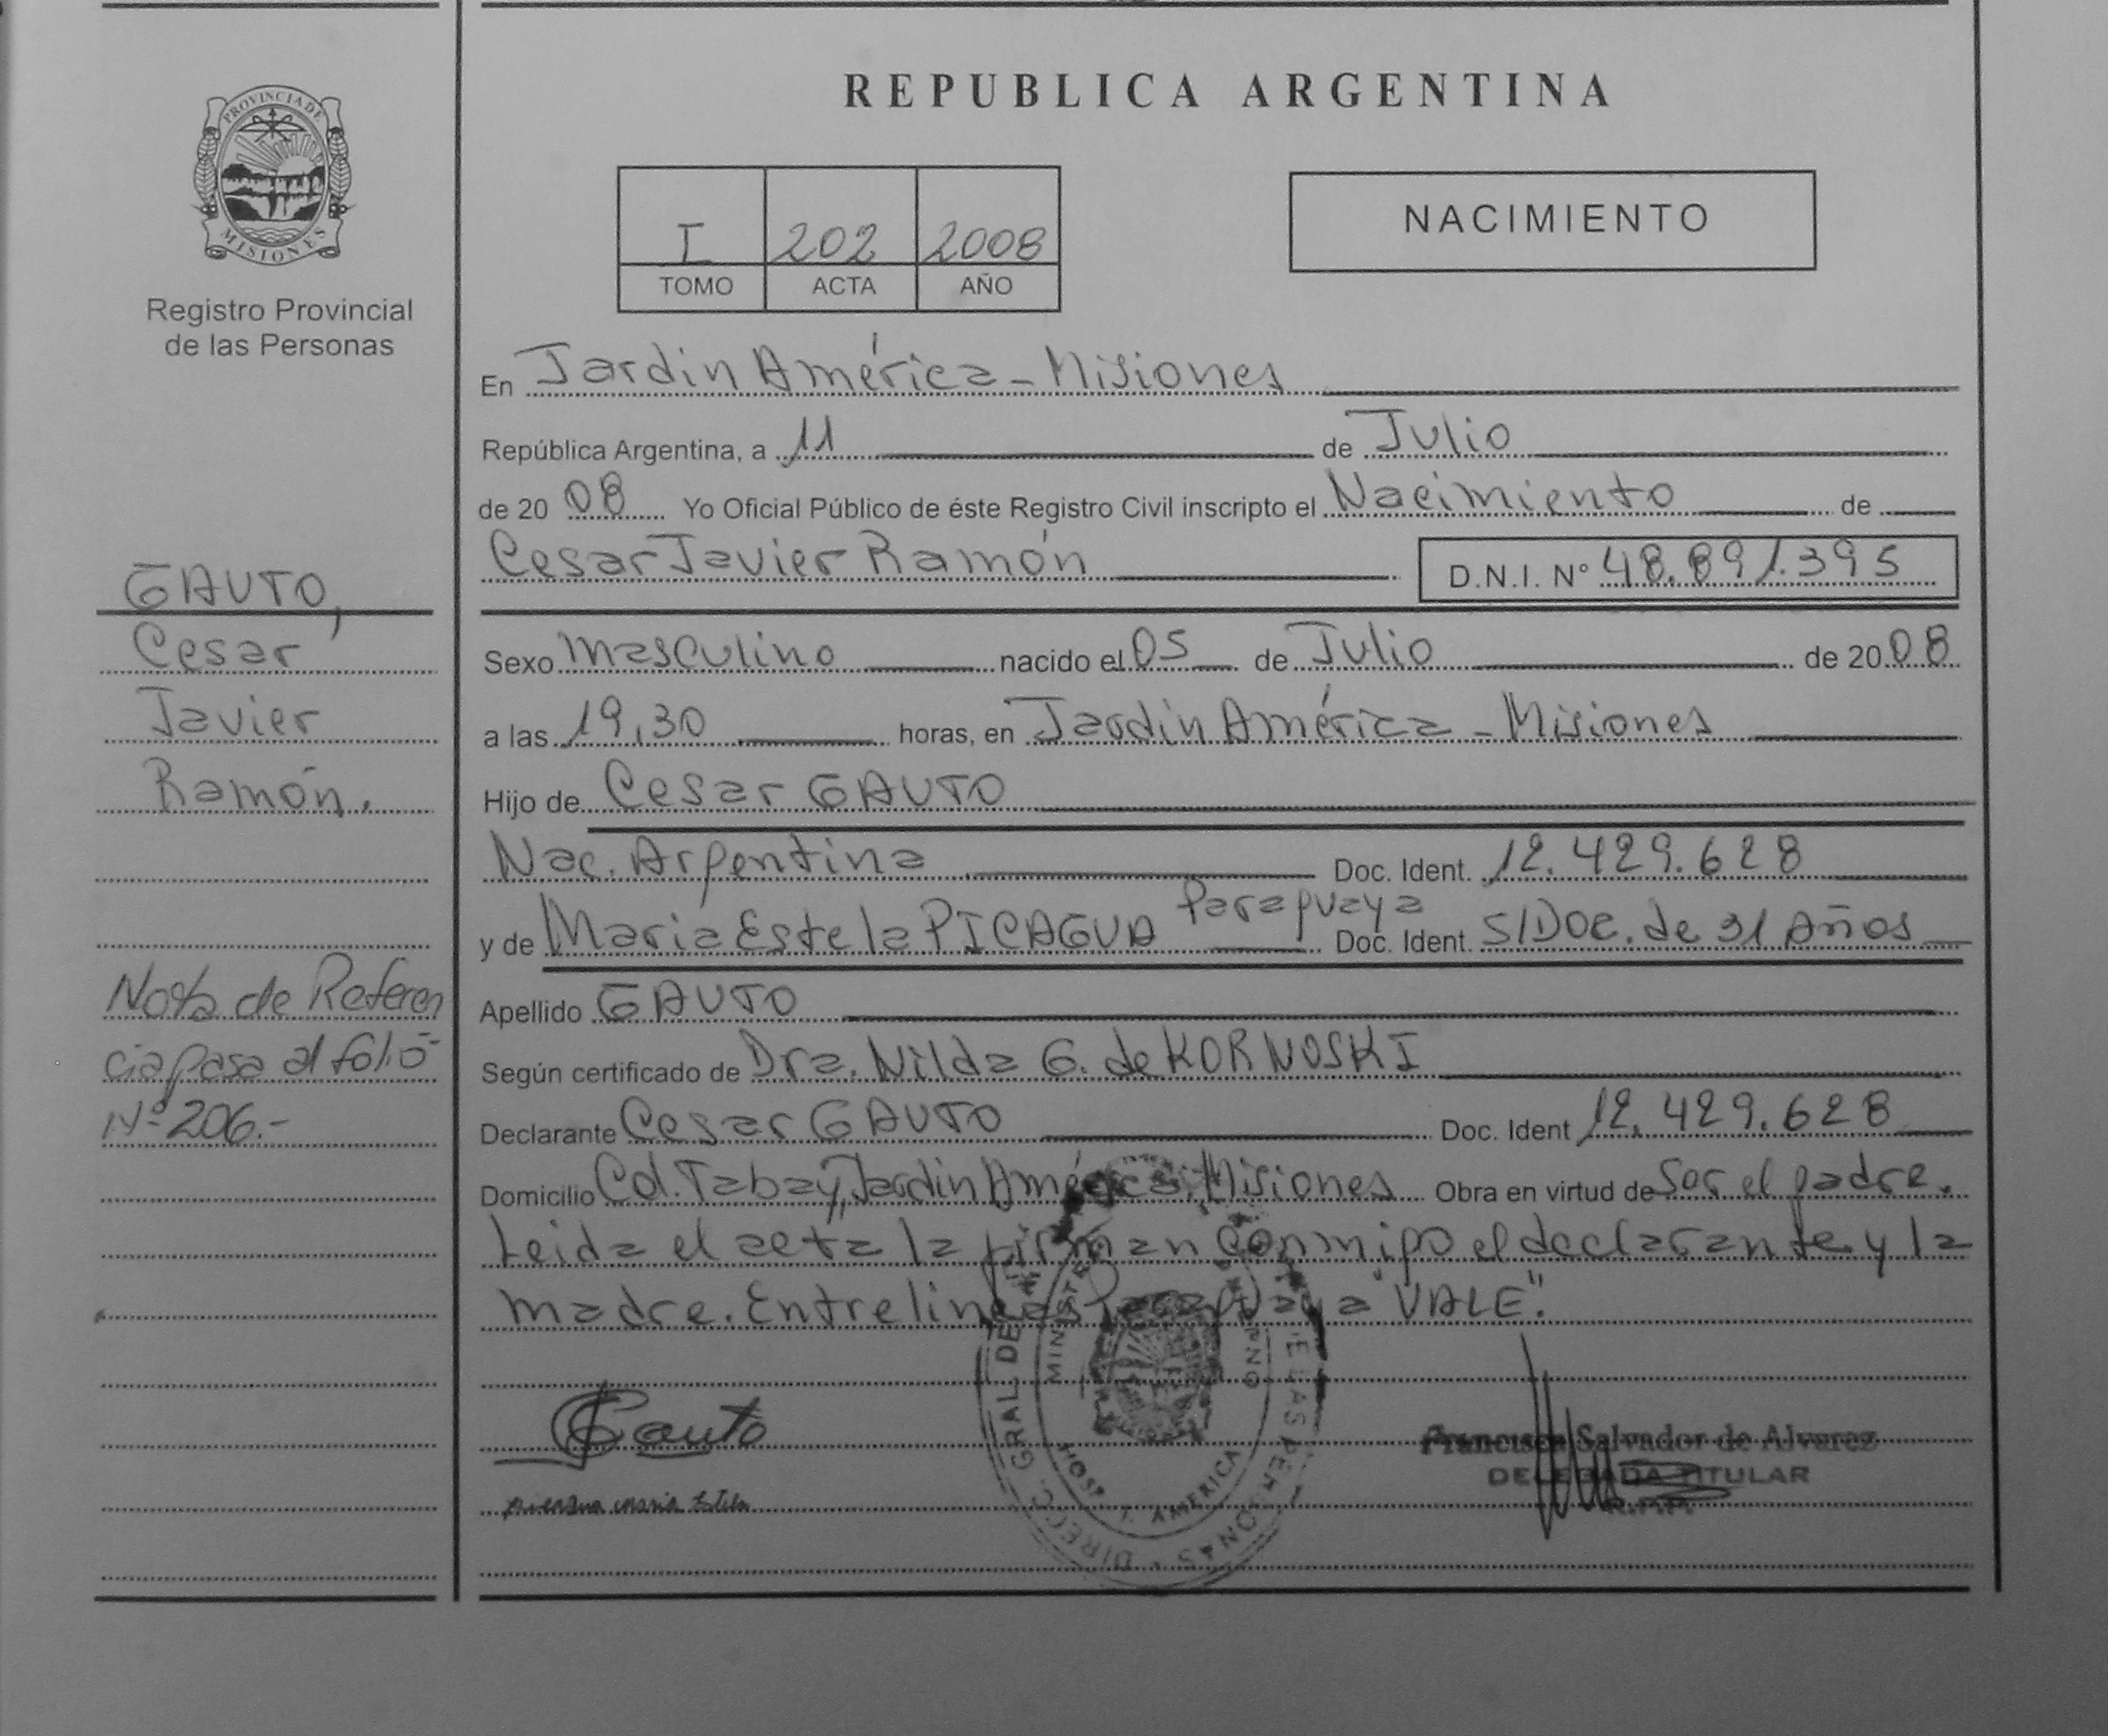 REPUBLICA ARGENTINA
PROVINCIA DE
MISIONES
Registro Provincial
de las Personas
I 202 2008
TOMO ACTA AÑO
NACIMIENTO
En Jardín América - Misiones
República Argentina, a 11 de Julio
de 2008 Yo Oficial Público de éste Registro Civil inscripto el Nacimiento de
Cesar Javier Ramón D.N.I. Nº 48.891.395
GAUTO,
Cesar
Javier
Ramón.
Sexo Masculino nacido el 05 de Julio de 2008
a las 19,30 horas, en Jardín América - Misiones
Hijo de Cesar GAUTO
Nac. Argentina Doc. Ident. 12.429.628
Paraguaya
y de Maria Estela PICAGUA Doc. Ident. S/DOC. de 31 Años
Nota de Referen
cia pasa al folio
Nº 206.-
Apellido GAUTO
Según certificado de Dra. Nilda G. de KORNOSKI
Declarante Cesar GAUTO Doc. Ident 12.429.628
Domicilio Col. Tabay, Jardín América, Misiones Obra en virtud de Ser el padre.
Leida el acta la firman conmigo el declarante y la
madre. Entrelineas "Paraguaya" VALE".
Gauto
Maria Estela
Francisca Salvador de Alvarez
DELEGADA TITULAR
R.P.P.
DIRECC. GRAL DE LAS PERSONAS
HOSP. J. AMERICA